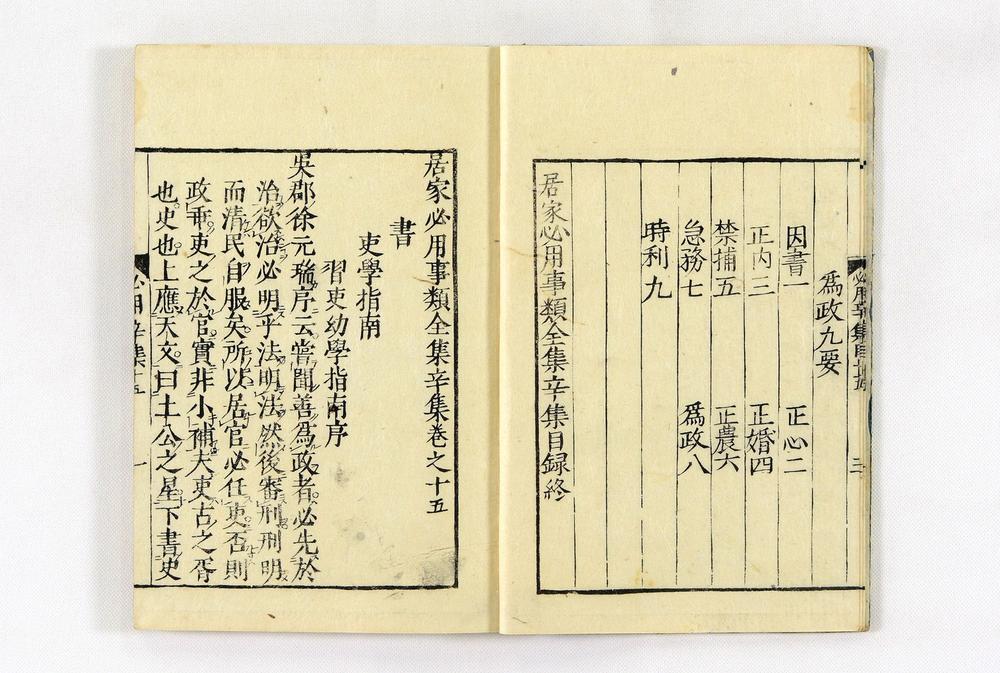 必用辛集目
爲政九要
因書一　正心二
正内三　正婚四
禁捕五　正農六
急務七　爲政八
時利九
居家必用事類全集辛集目録終
居家必用事類全集辛集卷之十五
書
吏學指南
習吏幼學指南序
吳郡徐元瑞序云嘗聞善爲政者必先於
治欲治必明乎法明法然後審刑刑明
而清民自服矣所以居官必任吏否則
政乖吏之於官實非小補夫吏古之胥
也史也上應天文曰土公之星下書史
必用辛集十五　一